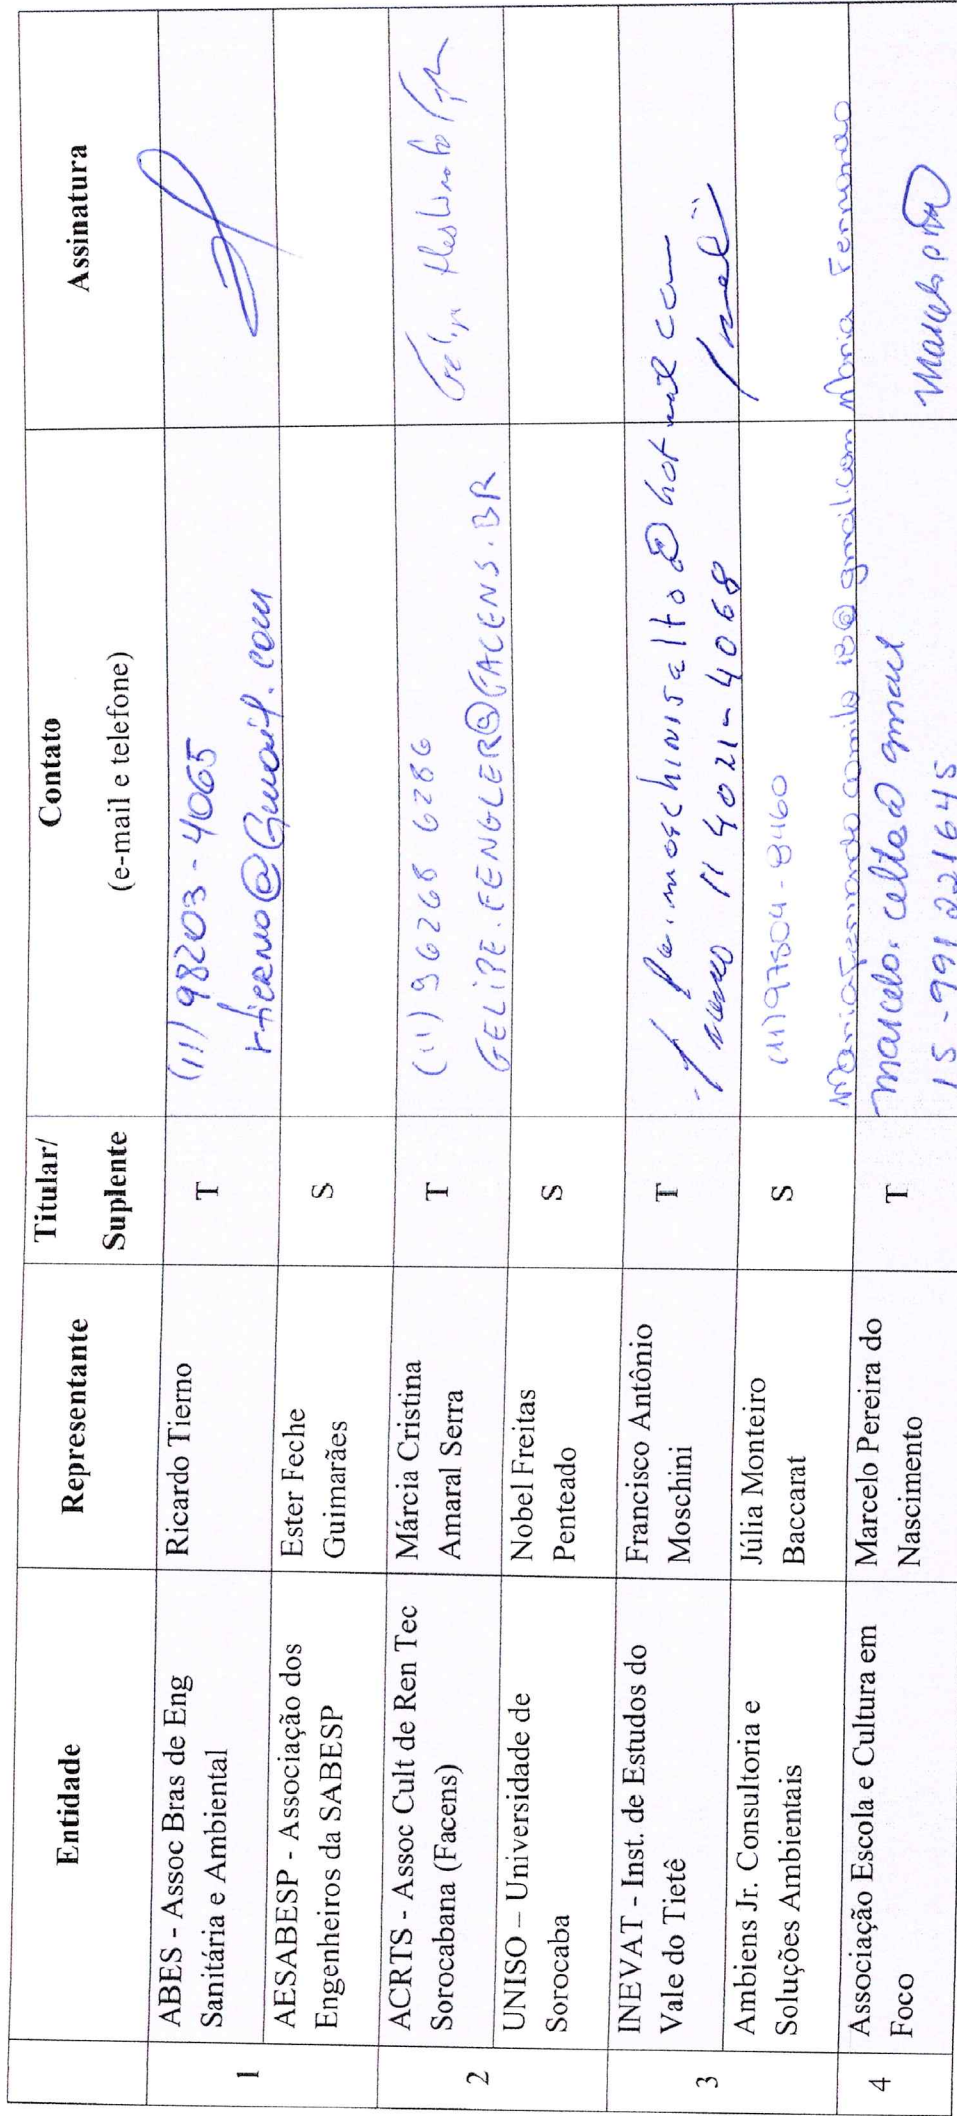 Entidade Representante Titular/ Contato Assinatura
Suplente (e-mail e telefone)
1
ABES - Assoc Bras de Eng
Sanitária e Ambiental
Ricardo Tierno
T
(11) 98203-4065
rtierno@gmail.com
AESABESP - Associação dos
Engenheiros da SABESP
Ester Feche
Guimarães
S
2
ACRTS - Assoc Cult de Ren Tec
Sorocabana (Facens)
Márcia Cristina
Amaral Serra
T
(11) 96268 6286
FELIPE.FENGLER@FACENS.BR
UNISO – Universidade de
Sorocaba
Nobel Freitas
Penteado
S
3
INEVAT - Inst. de Estudos do
Vale do Tietê
Francisco Antônio
Moschini
T
moschinisalto@hotmail.com
11 4021-4068
Ambiens Jr. Consultoria e
Soluções Ambientais
Júlia Monteiro
Baccarat
S
(11) 97504-8460
mariafernandacamilo18@gmail.com Maria Fernanda
4
Associação Escola e Cultura em
Foco
Marcelo Pereira do
Nascimento
T
marcelo.celtea@gmail
15-991221645
Marcelo